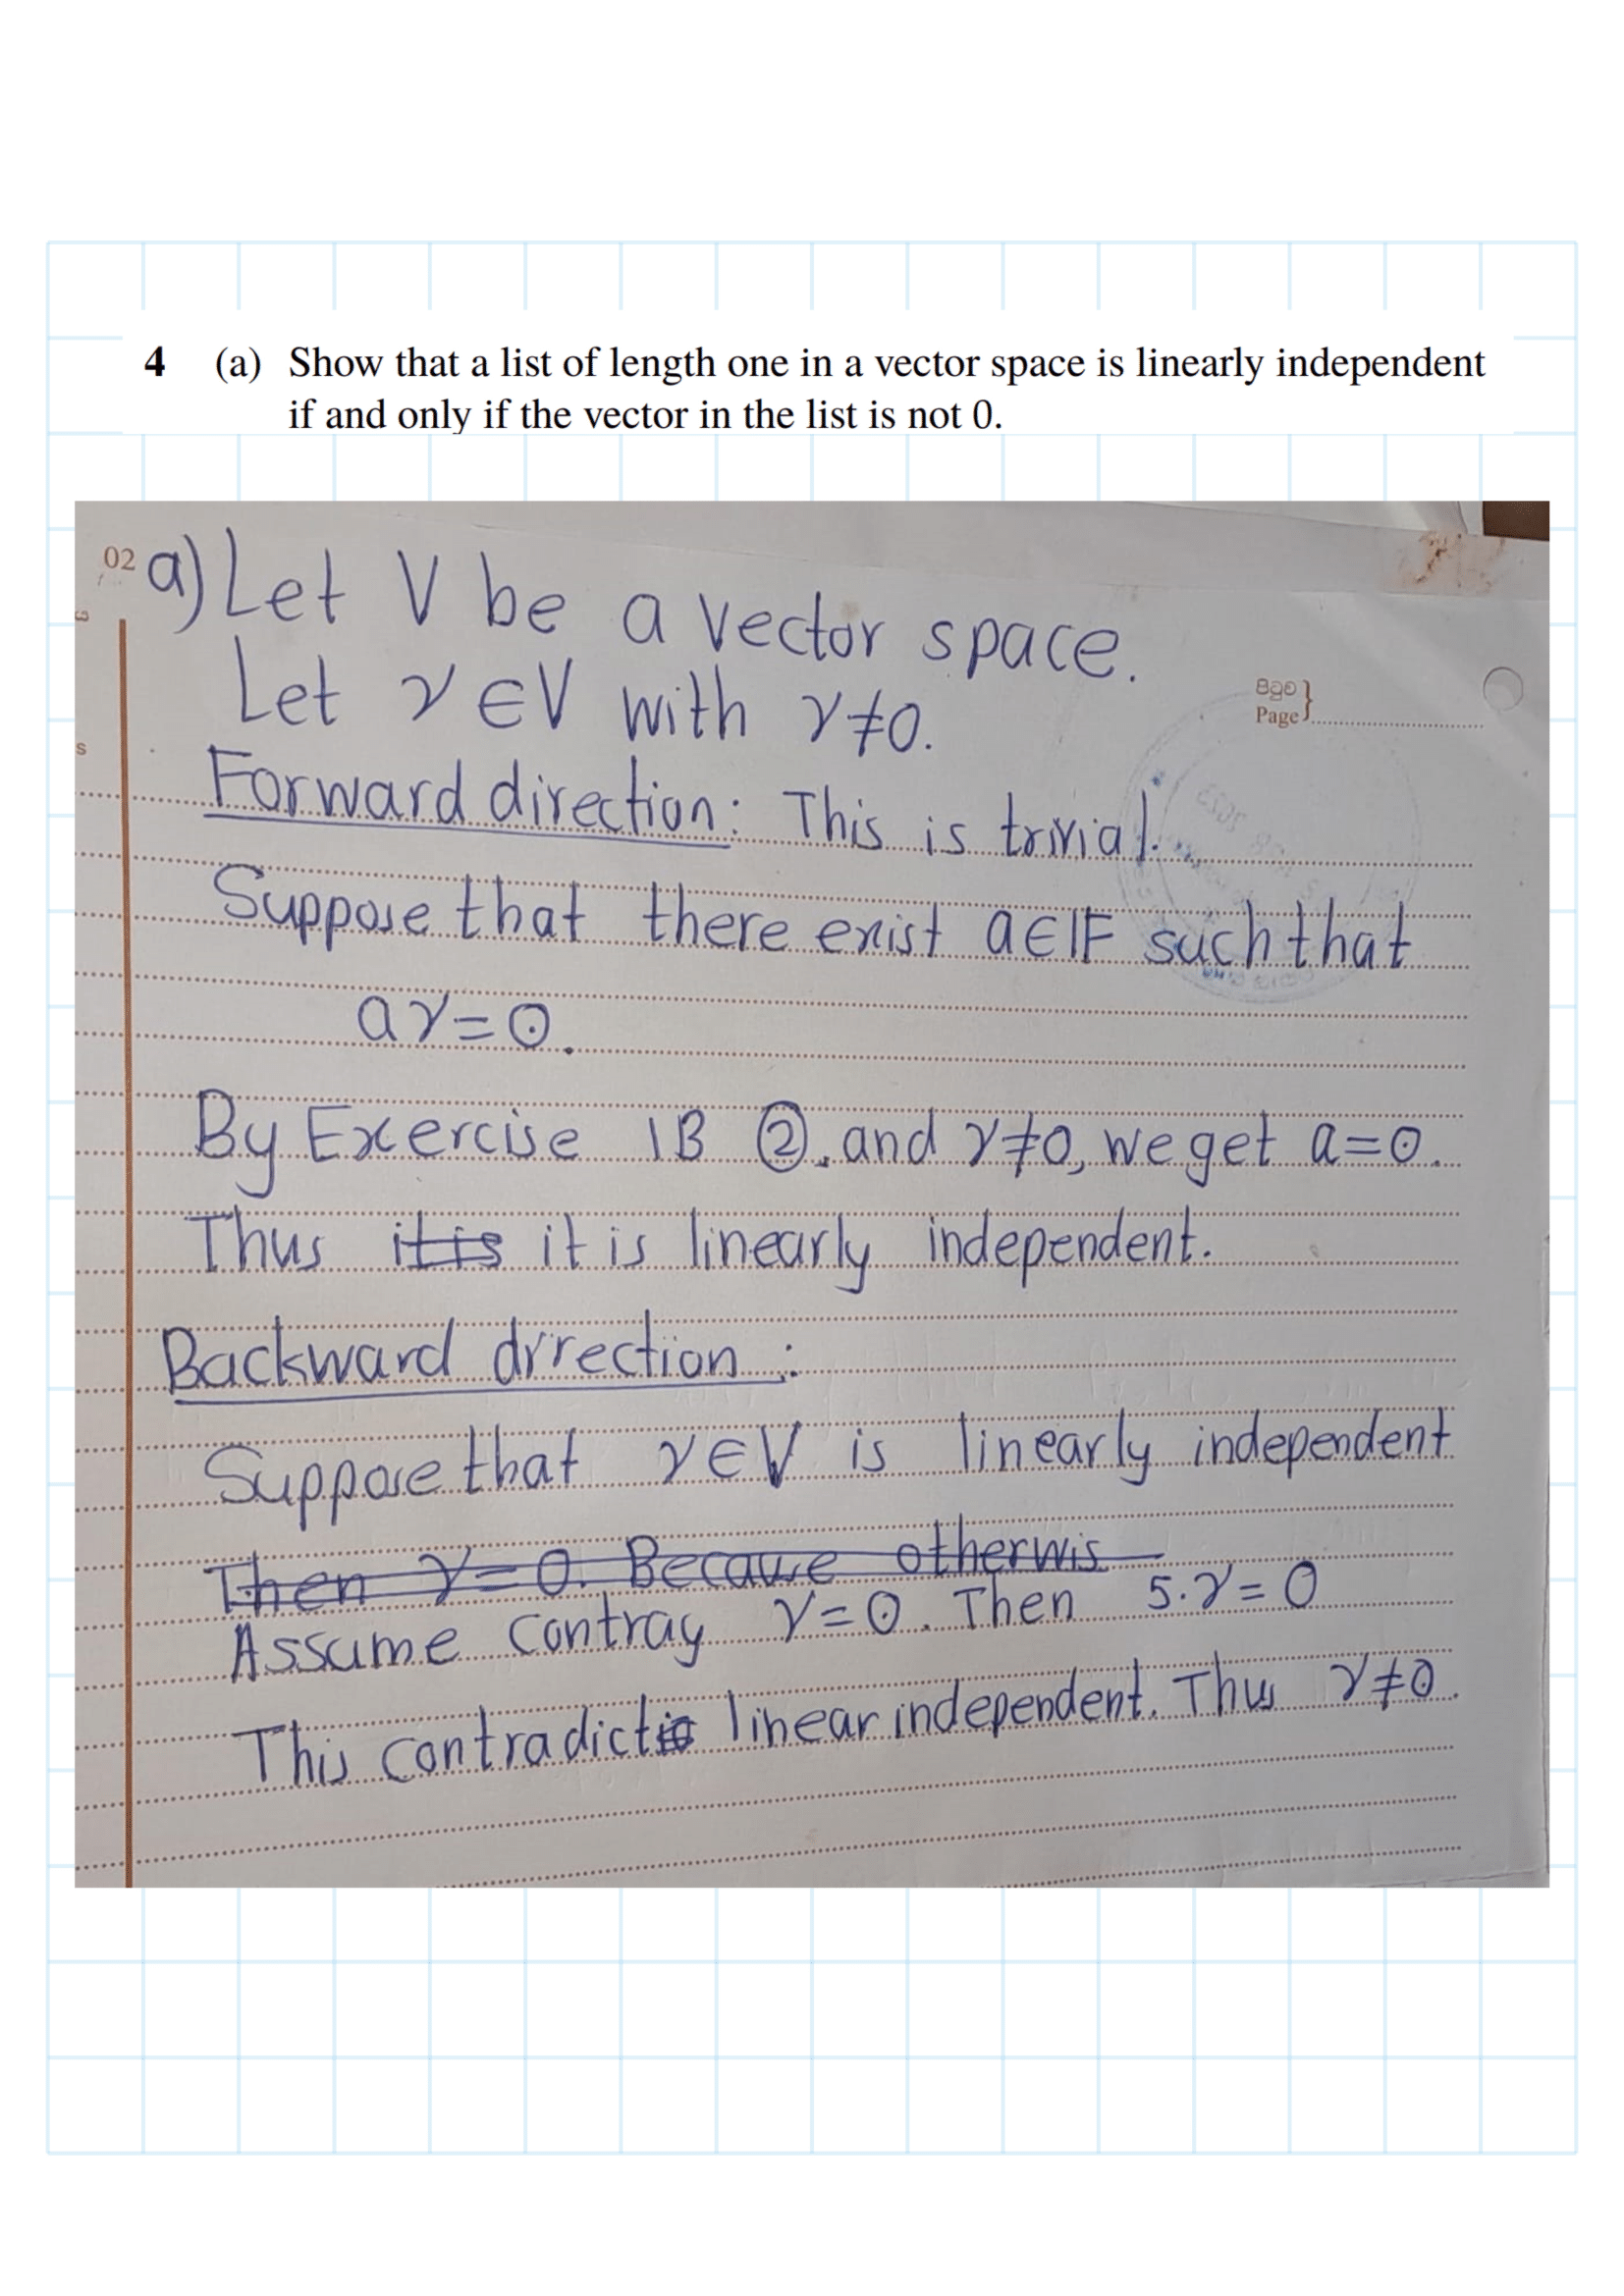 4 (a) Show that a list of length one in a vector space is linearly independent
if and only if the vector in the list is not 0.
02 a) Let V be a vector space.
Let v ∈ V with v ≠ 0.
පිටුව
Page }
Forward direction: This is trivial.
Suppose that there exist a ∈ F such that
av = 0.
By Exercise 1B ②, and v ≠ 0, we get a = 0.
Thus it is it is linearly independent.
Backward drrection :
Suppose that v ∈ V is linearly independent
Then v = 0. Because otherwis
Assume contray v = 0. Then 5.v = 0
This contradict linear independent. Thus v ≠ 0.